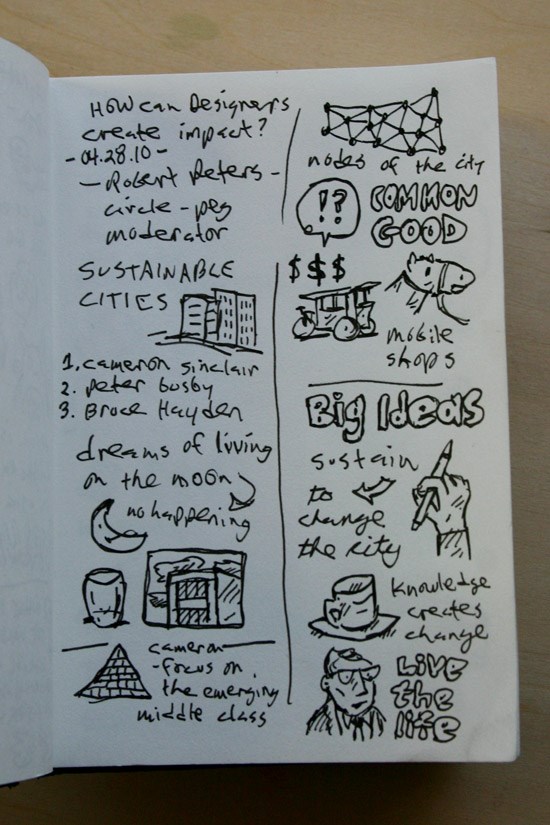 How can Designers
create impact?
- 04.28.10 -
- Robert Peters -
circle - peg
moderator
SUSTAINABLE
CITIES
1. cameron sinclair
2. peter busby
3. Bruce Hayden
dreams of living
on the moon
no happening
cameron
- focus on
the emerging
middle class
nodes of the city
!?
COMMON
GOOD
$ $ $
mobile
shops
Big Ideas
sustain
to
change
the city
knowledge
creates
change
Live
the
life